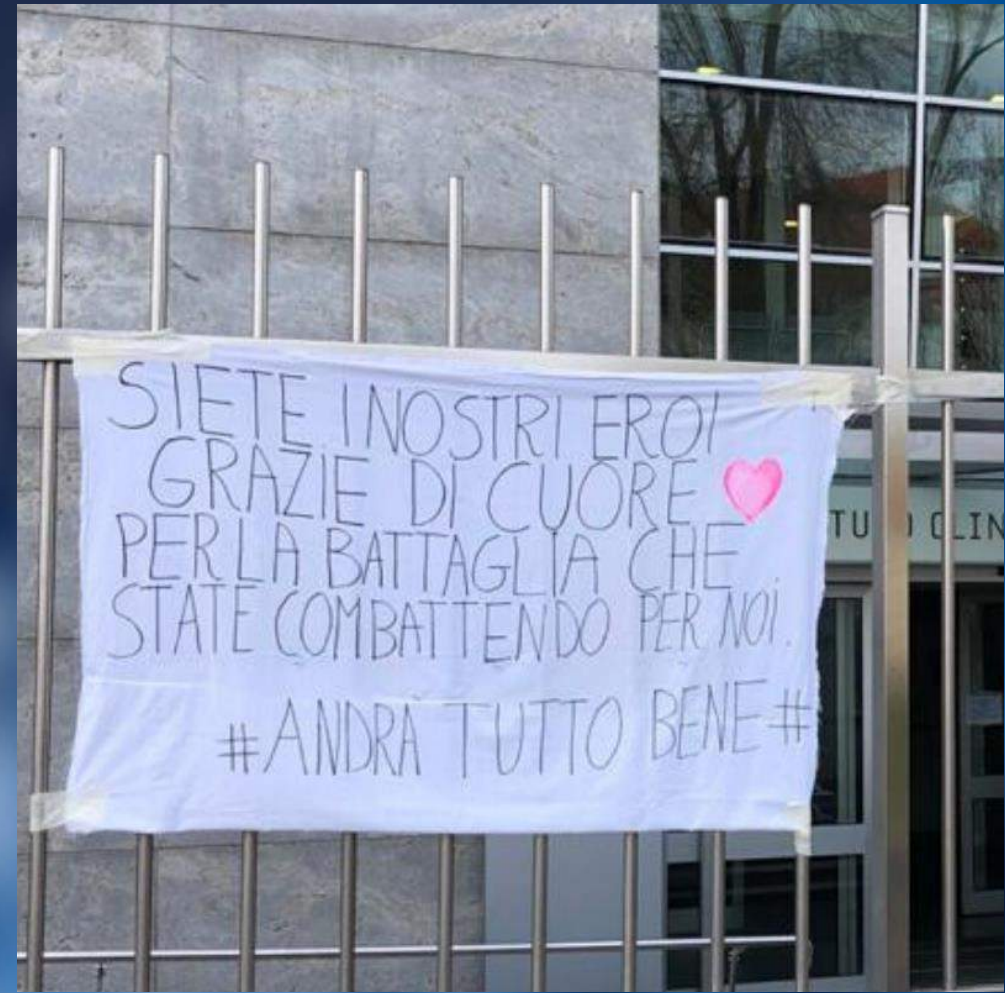 SIETE I NOSTRI EROI
GRAZIE DI CUORE
PER LA BATTAGLIA CHE
STATE COMBATTENDO PER NOI.
#ANDRÀ TUTTO BENE#